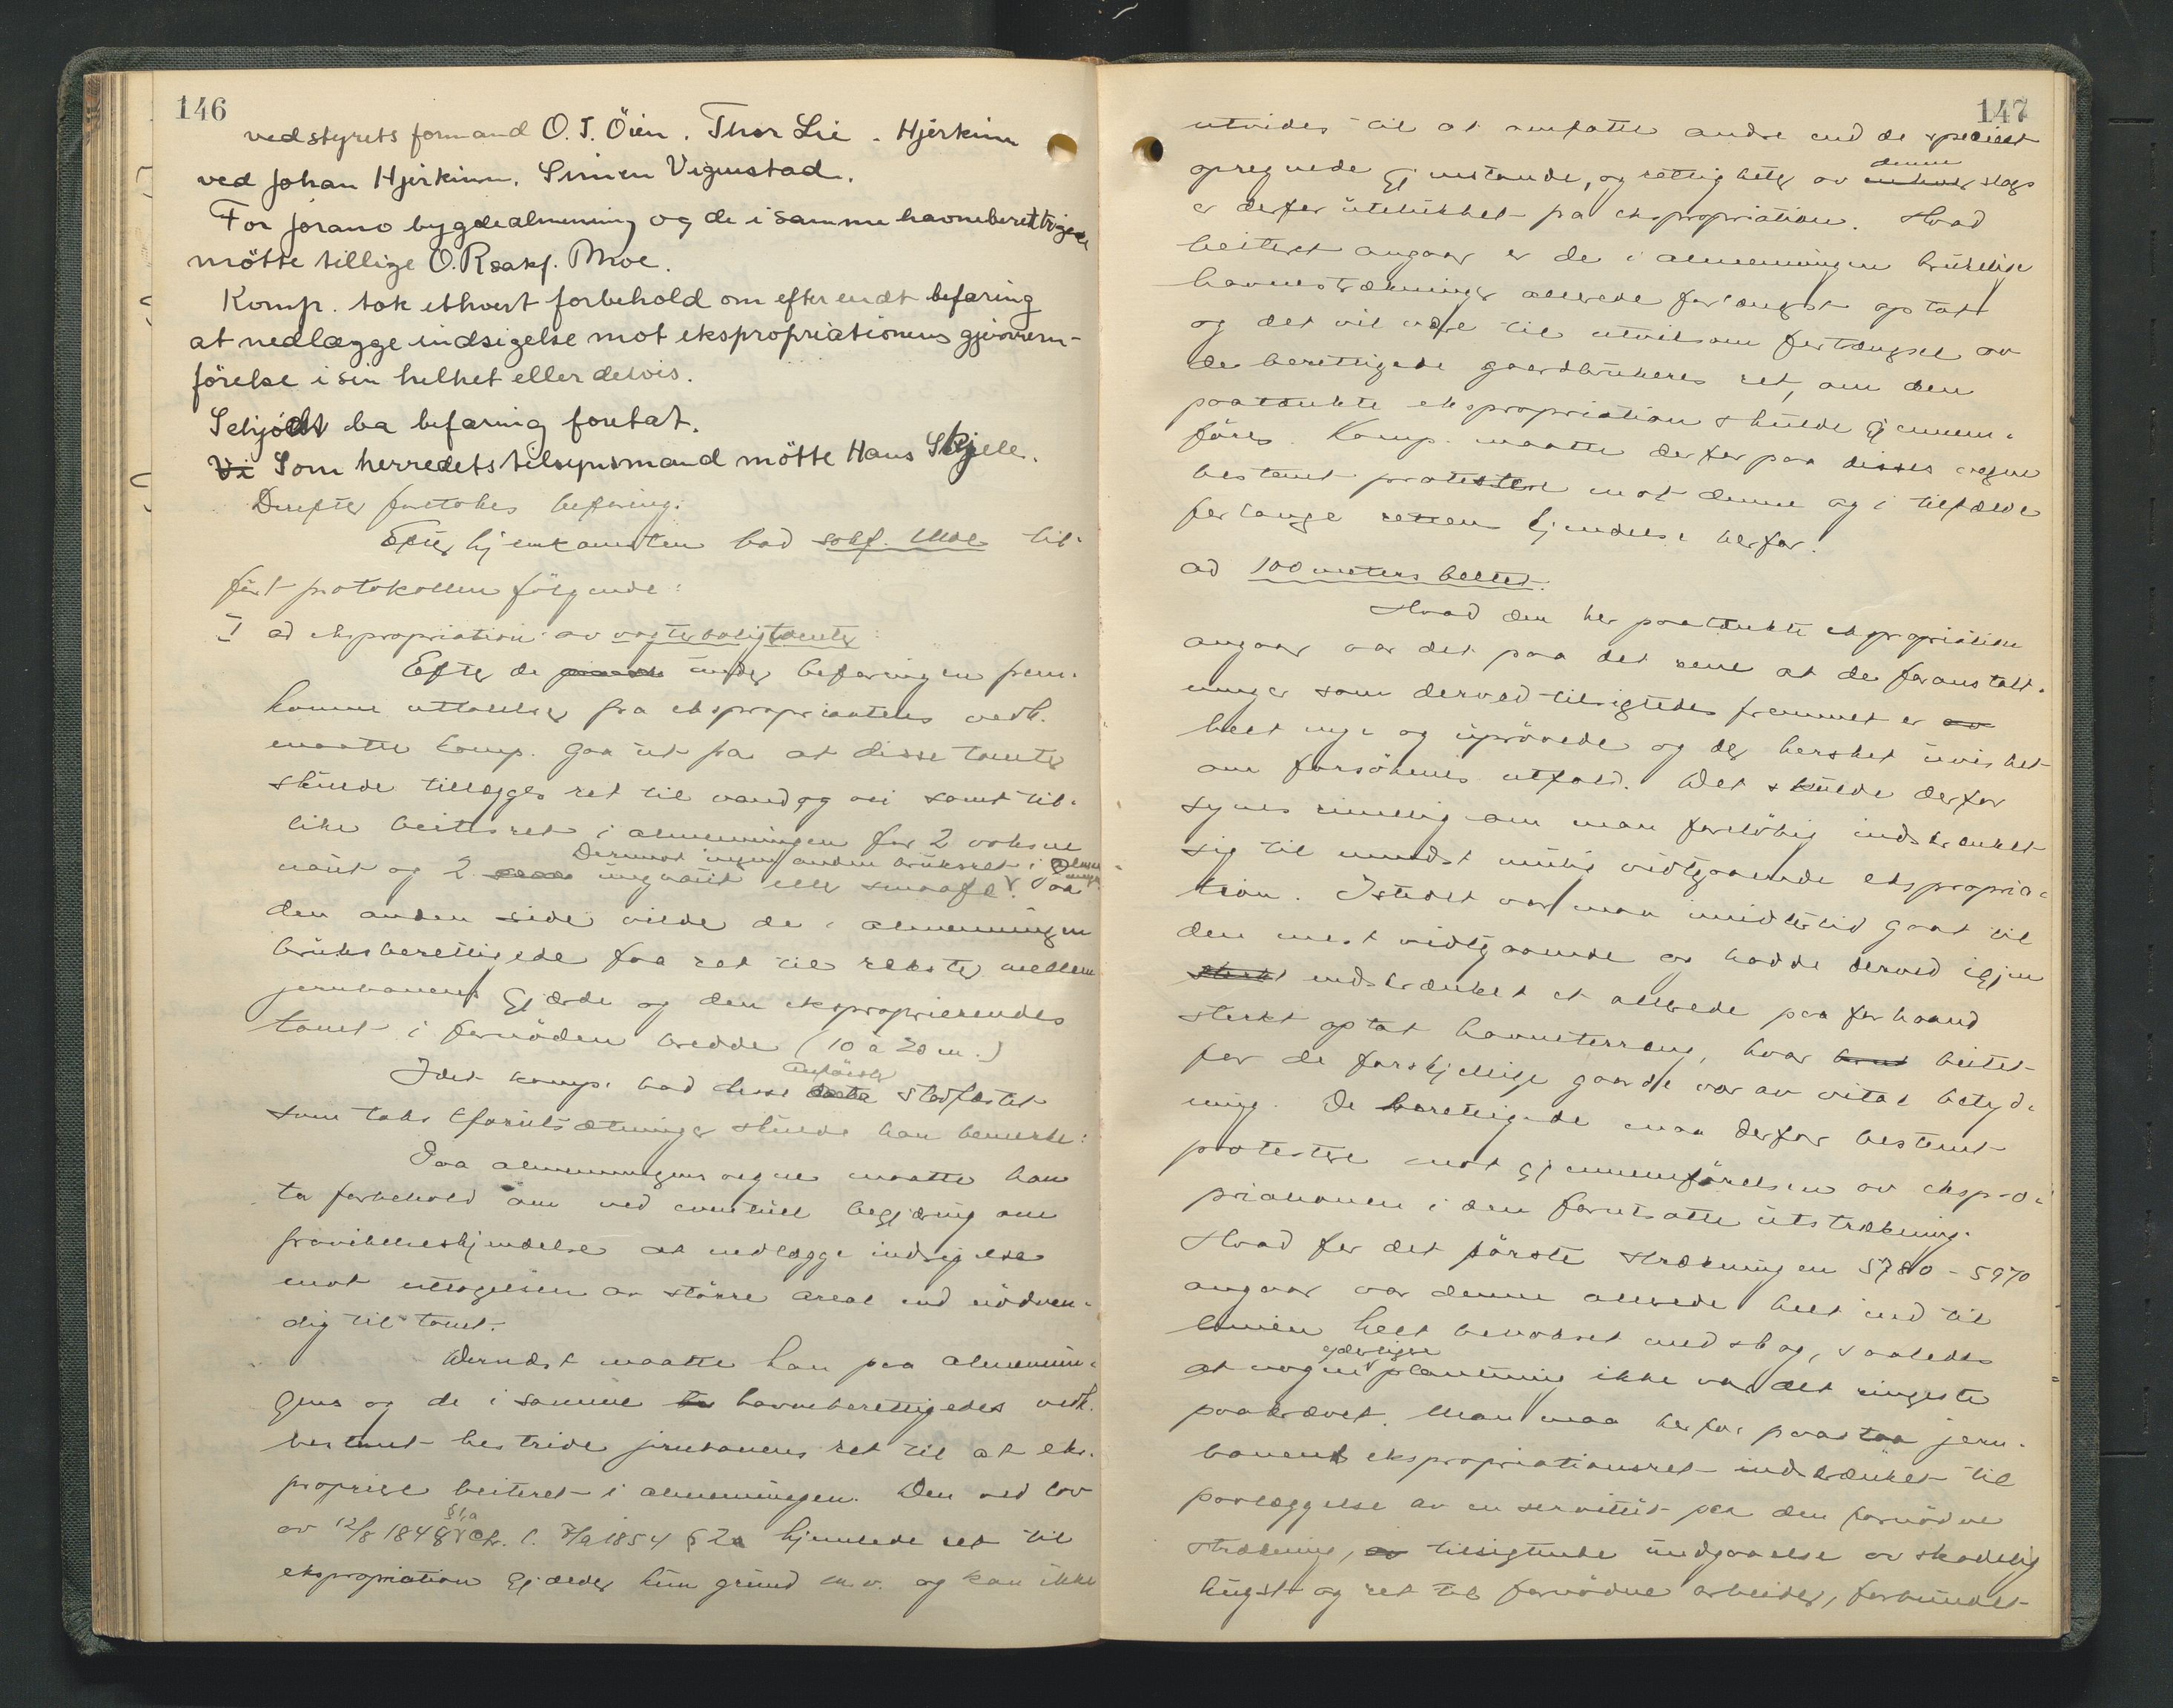 146
vedstyrets formand O. T. Öien. Thor Lie. Hjerkinn
ved Johan Hjerkinn. Simen Vigenstad.
For Jorano bygdealmenning og de i samme havneberettigede
mötte tillige O.Rsakf. Moe.
Komp. tok ethvert forbehold om efter endt befaring
at nedlægge indsigelse mot ekspropriationens gjennem-
förelse i sin helhet eller delvis.
Schjödt ba befaring foretat.
Vi Som herredets tilsynsmand mötte Hans Skjelle.
Derefter foretokes befaring.
Efter hjemkomsten bad sakf. Moe til-
fört protokollen fölgende:
I ad ekspropriation av vogterboligtomter:
Efter de under befaringen frem-
komne uttalelser fra ekspropriantens vedk.
maatte komp. gaa ut fra at disse tomter
skulde tillægges ret til vand og vei samt til-
like beitesret i almenningen for 2 voksne
Derimot ingen anden bruksret i almenningen
naut og 2 ungnaut eller smaafe. Paa
den anden side vilde de i almenningen
bruksberettigede faa ret til rekster mellem
jernbanens gjærde og den eksproprierendes
tomt i fornöden bredde (10 a 20 m.)
Idet komp. bad disse anförsler stadfæstet
som taks forutsætninger skulde han bemerke:
Paa almenningens vegne maatte han
ta forbehold om ved eventuel begjæring om
fravikelseskjendelse at nedlægge indsigelse
mot avtagelsen av större areal end nödven-
dig til tomt.
Dernæst maatte han paa almennin-
gens og de i samme havneberettigedes vedk.
bestemt bestride jernbanens ret til at eks-
propriere beiteret i almenningen. Den ved lov
av 12/8 1848 § 1,a jfr. l. 7/9 1854 § 2a hjemlede ret til
ekspropriation gjælder kun grund m.v. og kan ikke
147
utvides til at omfatte andre end de specielt
opregnede gjenstande, og rettigheter av denne slags
er derfor utelukket fra ekspropriation. Hvad
beiteret angaar er de i almenningen brukelige
havnestrækninger allerede forlængst optat
og det vil være til utvilsom fortrængsel av
de berettigede gaardbrukeres ret, om den
paatænkte ekspropriation skulde gjennem-
föres. Komp. maatte derfor paa disses vegne
bestemt protestere mot denne og i tilfælde
forlange rettens kjendelse herfor.
ad 100 meters beltet.
Hvad den her paatænkte ekspropriation
angaar var det paa det rene at de foranstalt-
ninger som derved tilsigtedes fremmet er
helt nye og uprövede og der hersket uvishet
om forsökenes utfald. Det skulde derfor
synes rimelig om man foreløbig indskrænket
sig til mindst mulig vidtgaaende ekspropria-
tion. Istedet var man imidlertid gaat til
den mest vidtgaaende og hadde derved igjen
sterkt indskrænket et allerede paa forhaand
sterkt optat havneterræng, hvor beitet
for de forskjellige gaarde var av vital betyd-
ning. De berettigede maa derfor bestemt
protestere mot gjennemförelsen av ekspro-
priationen i den forutsatte utstrækning.
Hvad for det förste strækningen 5780 - 5970
angaar var denne allerede helt ind til
linien helt bevokset med skog, saaledes
at nogen yderligere plantning ikke var det ringeste
paakrævet. Man maa herfor paastaa jern-
banens ekspropriationsret indskrænket til
paalæggelse av en servitut paa den fornödne
strækning, tilsigtende undgaaelse av skadelig
hugst og ret til fornödne arbeider, forbundet